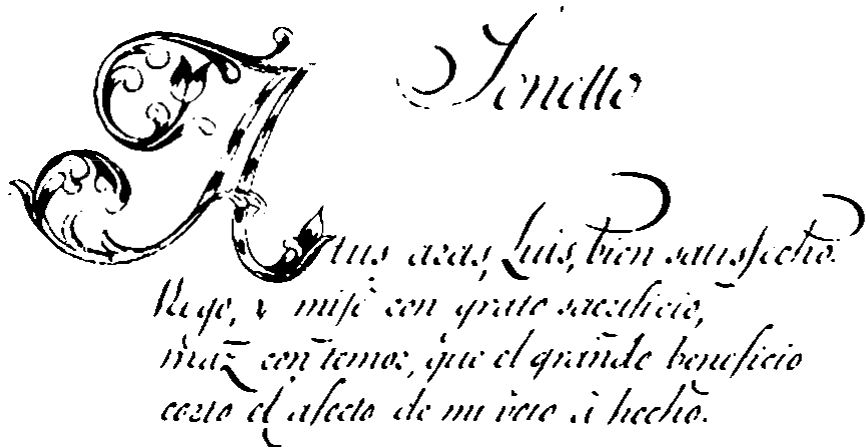 Sonetto
A tus aras, Luis, bien satisfecho.
llego, y mi fè con grato sacrificio,
mas con temor, que el grande beneficio
corto el afecto de mi voto à hecho.